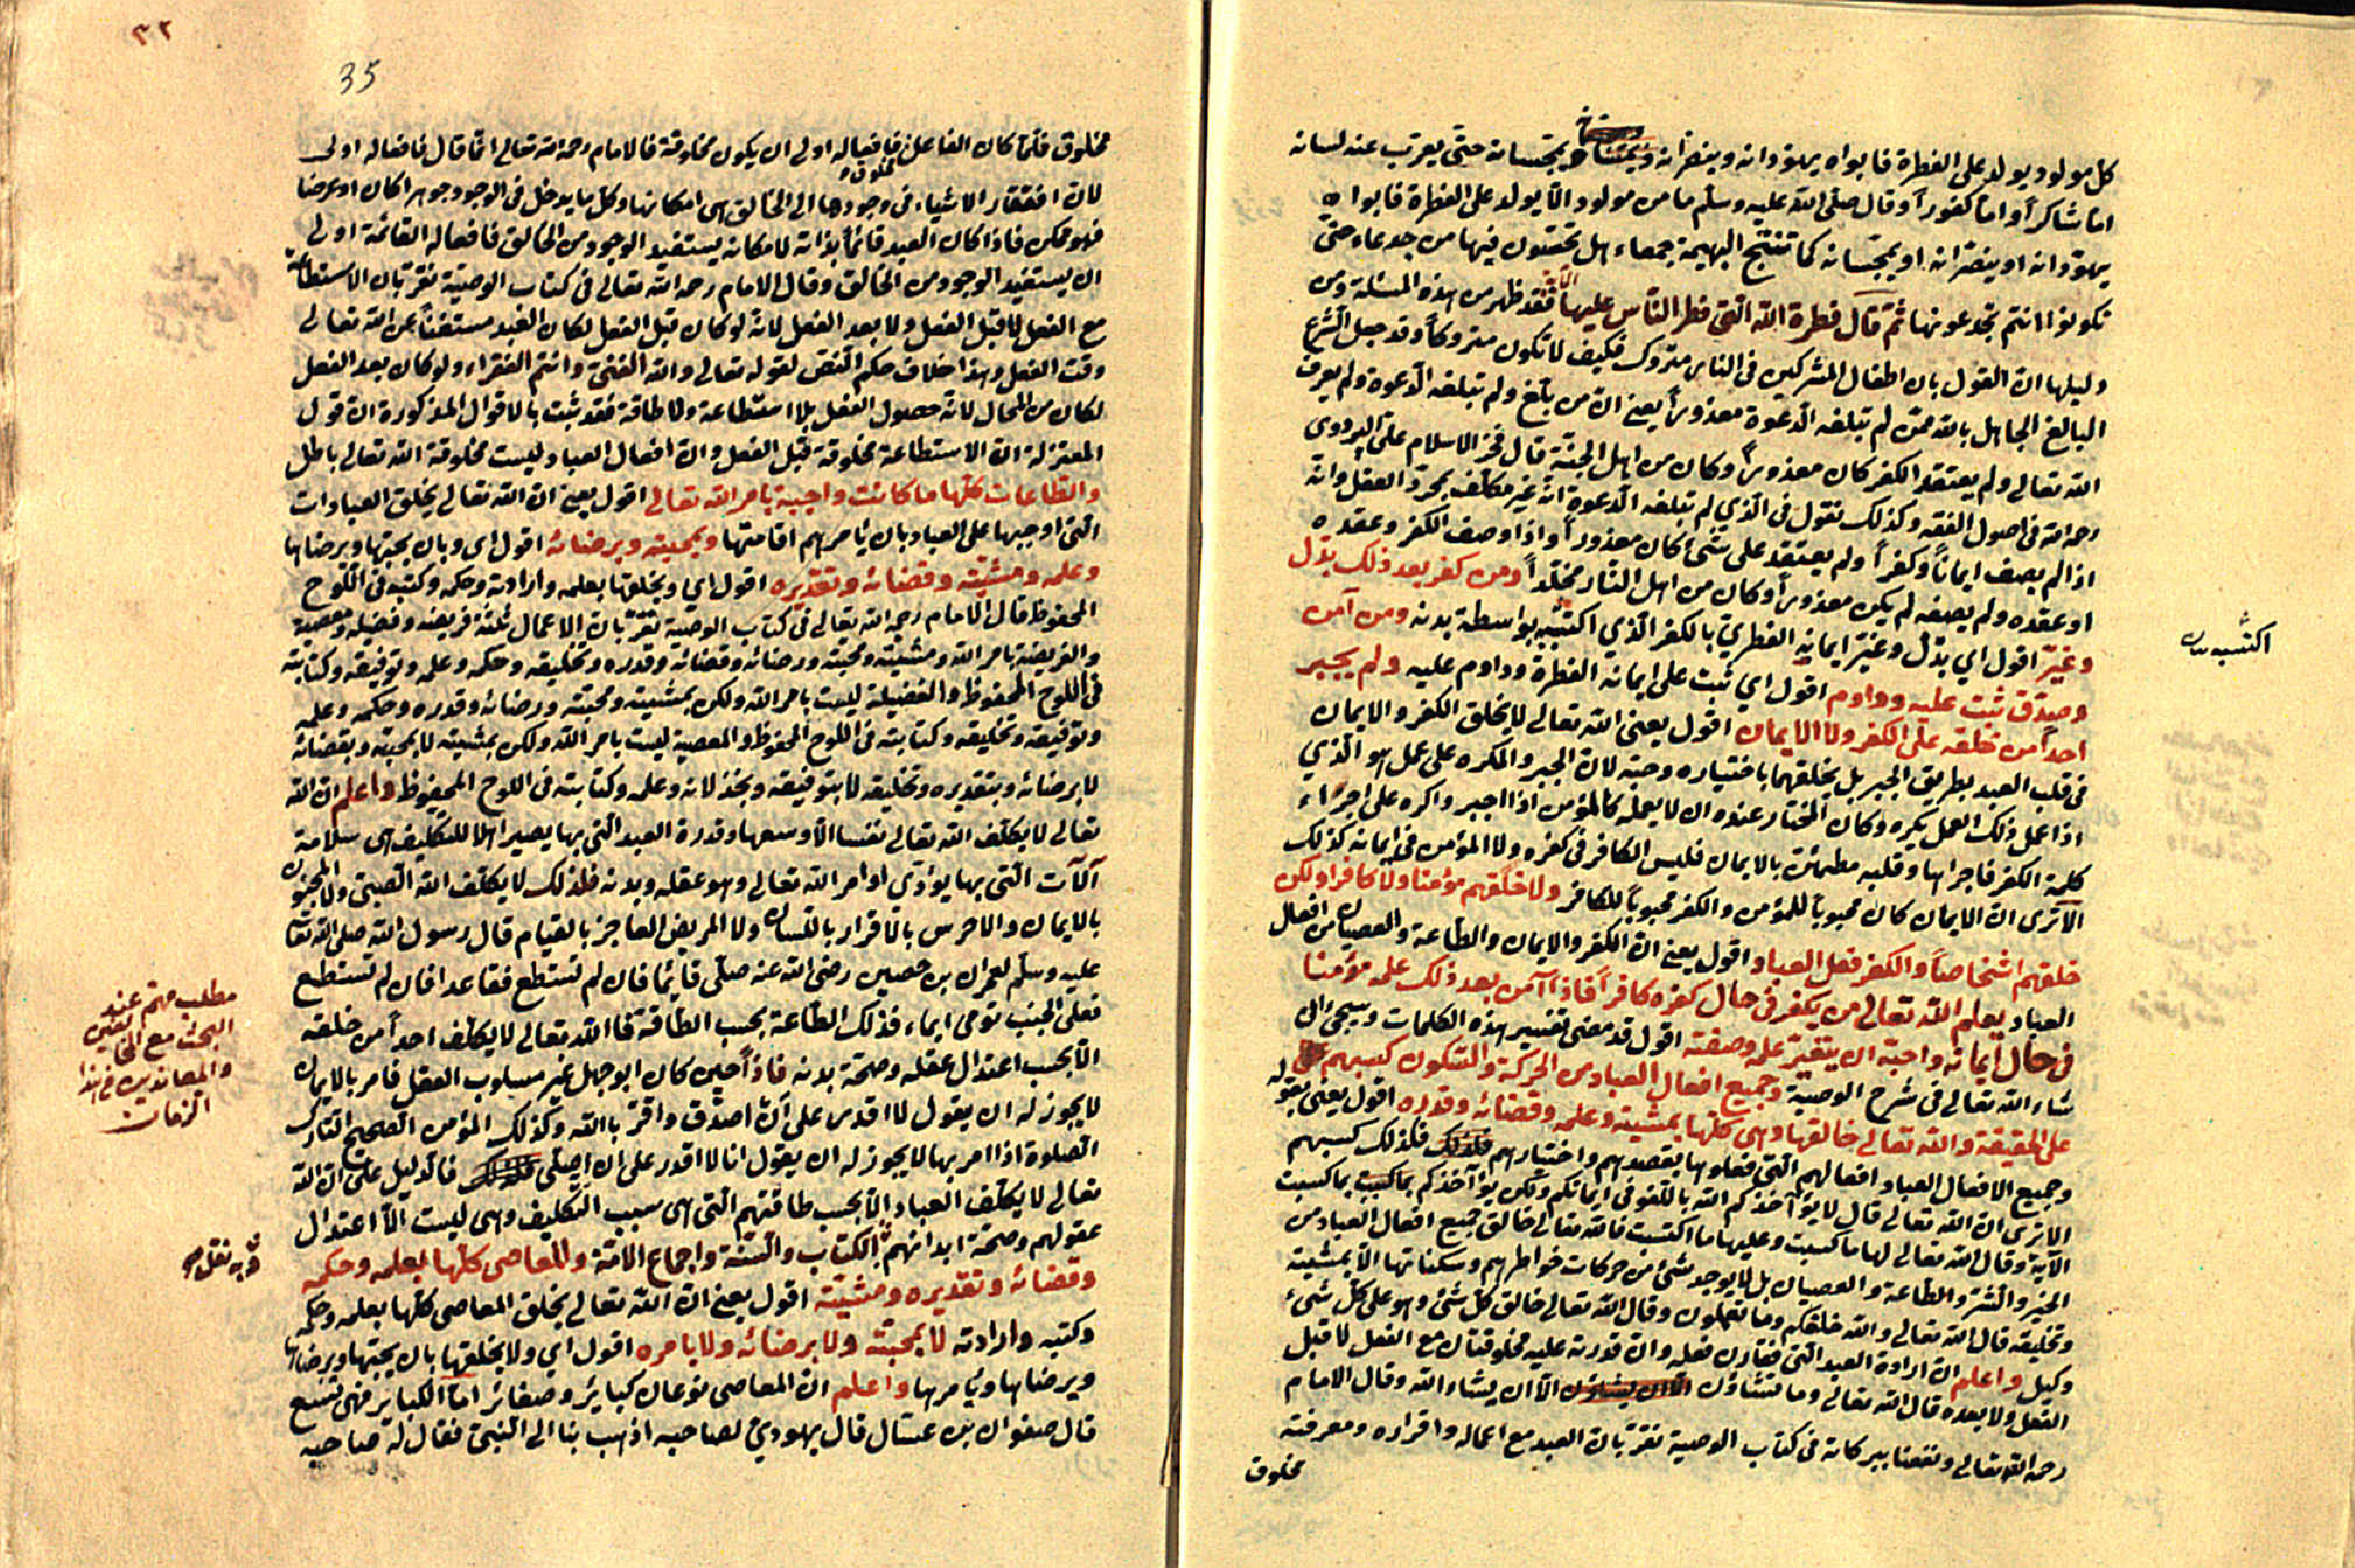 كل مولود يولد على الفطرة فابواه يهودانه وينصرانه ويمجسانه حتى يعرب عنه لسانه
اما شاكرا واما كفورا وقال صلى الله عليه وسلم ما من مولود الا يولد على الفطرة فابواه
يهودانه او ينصرانه او يمجسانه كما تنتج البهيمة جمعاء هل تحسون فيها من جدعاء حتى
تكونوا انتم تجدعونها ثم قال فطرة الله التى فطر الناس عليها الآية فقد ظهر من هذه المسئلة ومن
دليلها ان القول بان اطفال المشركين فى النار متروك فكيف لا تكون متروكا وقد جعل الشرع
البالغ الجاهل بالله ممن لم تبلغه الدعوة معذورا يعنى ان من بلغ ولم تبلغه الدعوة ولم يعرف
الله تعالى ولم يعتقد الكفر كان معذورا وكان من اهل الجنة قال فخر الاسلام على البزدوى
رحمه الله فى اصول الفقه وكذلك نقول فى الذي لم تبلغه الدعوة انه غير مكلف بمجرد العقل وانه
اذا لم يصف ايمانا وكفرا ولم يعتقد على شئ كان معذورا واذا وصف الكفر وعقده
او عقده ولم يصفه لم يكن معذورا وكان من اهل النار مخلدا ومن كفر بعد ذلك بدل
وغير اقول اي بدل وغير ايمانه الفطري بالكفر الذي اكتسبه بواسطة بدنه ومن آمن
وصدق ثبت عليه وداوم اقول اي ثبت على ايمانه الفطرة وداوم عليه ولم يجبر
احدا من خلقه على الكفر ولا الايمان اقول يعنى الله تعالى لا يخلق الكفر والايمان
فى قلب العبد بطريق الجبر بل يخلقهما باختياره وحبه لان الجبر والمكره على عمل هو الذي
اذا عمل ذلك العمل يكره وكان المختار عنده ان لا يعمله كالمؤمن اذا اجبر واكره على اجراء
كلمة الكفر فاجراها وقلبه مطمئن بالايمان فليس الكافر فى كفره ولا المؤمن فى ايمانه كذلك
الا ترى ان الايمان كان محبوبا للمؤمن والكفر محبوبا للكافر ولا خلقهم مؤمنا ولا كافرا ولكن
خلقهم اشخاصا والكفر فعل العباد اقول يعنى ان الكفر والايمان والطاعة والعصيان من افعال
العباد يعلم الله تعالى من يكفر فى حال كفره كافرا فاذا آمن بعد ذلك علمه مؤمنا
فى حال ايمانه واحبه ان يتغير علمه وصفته اقول قد مضى تفسير هذه الكلمات وسيجئ ان
شاء الله تعالى فى شرح الوصية وجميع افعال العباد من الحركة والسكون كسبهم
على الحقيقة والله تعالى خالقها وهى كلها بمشيته وعلمه وقضائه وقدره اقول يعنى بقوله
وجميع الافعال العباد افعالهم التى فعلوها بقصدهم واختيارهم فكذلك كسبهم
الا ترى ان الله تعالى قال لا يؤآخذكم الله باللغو فى ايمانكم ولكن يؤآخذكم بما كسبت
الآية وقال الله تعالى لها ما كسبت وعليها ما اكتسبت فالله تعالى خالق جميع افعال العباد من
الخير والشر والطاعة والعصيان بل لا يوجد شئ من حركات خواطرهم وسكناتها الا بمشيته
وتخليقه قال الله تعالى والله خلقكم وما تعملون وقال الله تعالى خالق كل شئ وهو على كل شئ
وكيل واعلم ان ارادة العبد التى تقارن فعله وان قدرته عليه مخلوقتان مع الفعل لا قبل
الفعل ولا بعده قال الله تعالى وما تشاؤن الا ان يشاء الله وقال الامام
رحمه الله تعالى ونفعنا ببركاته فى كتاب الوصية نقر بان العبد مع اعماله واقراره ومعرفته
مخلوق
اكتسبه
٣٢
35
مخلوق فلما كان الفاعل مخلوق فافعاله اولى ان يكون مخلوقة فالامام رحمه الله تعالى انما قال فافعاله اولى
لان افتقار الاشياء فى وجودها الى الخالق هى امكانها وكل ما يدخل فى الوجود جوهرا كان او عرضا
فهو ممكن فاذا كان العبد قائما بذاته لامكانه يستفيد الوجود من الخالق فافعاله القائمة اولى
ان يستفيد الوجود من الخالق وقال الامام رحمه الله تعالى فى كتاب الوصية نقر بان الاستطاعة
مع الفعل لا قبل الفعل ولا بعد الفعل لانه لو كان قبل الفعل لكان العبد مستغنا عن الله تعالى
وقت الفعل وهذا خلاف حكم النص لقوله تعالى والله الغنى وانتم الفقراء ولو كان بعد الفعل
لكان من المحال لانه حصول الفعل بلا استطاعة ولا طاقة فقد ثبت بالاقوال المذكورة ان قول
المعتزلة ان الاستطاعة مخلوقة قبل الفعل وان افعال العباد ليست مخلوقة الله تعالى باطل
والطاعات كلها ما كانت واجبة بامر الله تعالى اقول يعنى ان الله تعالى يخلق العبادات
التى اوجبها على العباد بان يأمرهم اقامتها وبمحبته وبرضائه اقول اى وبان يحبها ويرضاها
وعلمه ومشيته وقضائه وتقديره اقول اي ويخلقها بعلمه وارادته وحكمه وكتبه فى اللوح
المحفوظ قال الامام رحمه الله تعالى فى كتاب الوصية نقر بان الاعمال ثلثة فريضه وفضيلة ومعصية
والفريضة بامر الله ومشيته ومحبته ورضائه وقضائه وقدره وتخليقه وحكمه وعلمه وتوفيقه وكتابته
فى اللوح المحفوظ والفضيلة ليست بامر الله ولكن بمشيته ومحبته ورضائه وقدره وحكمه وعلمه
وتوفيقه وتخليقه وكتابته فى اللوح المحفوظ والمعصية ليست بامر الله ولكن بمشيته لا بمحبته وبقضائه
لا برضائه وبتقديره وتخليقه لا بتوفيقه وبخذلانه وعلمه وكتابته فى اللوح المحفوظ واعلم ان الله
تعالى لا يكلف الله تعالى نفسا الا وسعها وقدرة العبد التى بها يصير اهلا للتكليف هى سلامة
آلآت التى بها يؤدى اوامر الله تعالى وهو عقله وبدنه فلذلك لا يكلف الله الصبى ولا المجنون
بالايمان والاخرس بالاقرار باللسان ولا المريض العاجز بالقيام قال رسول الله صلى الله تعا
عليه وسلم لعمران بن حصين رضى الله عنه صلى قائما فان لم تستطع فقاعدا فان لم تستطع
فعلى الجنب تومى ايماء فذلك الطاعة بحسب الطاقة فاالله تعالى لا يكلف احدا من خلقه
الا بحسب اعتدال عقله وصحة بدنه فاذا حين كان ابو جهل غير مسلوب العقل فامر بالايمان
لا يجوز له ان يقول لا اقدر على ان اصدق واقر باالله وكذلك المؤمن الصحيح التارك
الصلوة اذا امر بها لا يجوز له ان يقول انا لا اقدر على ان اصلى فالدليل على ان الله
تعالى لا يكلف العباد الا بحسب طاقتهم التى هى سبب التكليف وهى ليست الا اعتدال
عقولهم وصحة ابدانهم الكتاب والسنة واجماع الامة والمعاصى كلها بعلمه وحكمه
وقضائه وتقديره ومشيته اقول يعنى ان الله تعالى يخلق المعاصى كلها بعلمه وحكمه
وكتبه وارادته لا بمحبته ولا برضائه ولا بامره اقول اي ولا يخلقها بان يحبها ويرضاها
ويرضاها ويأمرها واعلم ان المعاصى نوعان كبائر وصغائر اما الكبائر فهى تسع
قال صفوان بن عسال قال يهودي لصاحبه اذهب بنا الى النبى فقال له صاحبه
مطلب مهم عند
البحث مع المخالفين
والمعاندين فى هذا
الزمان